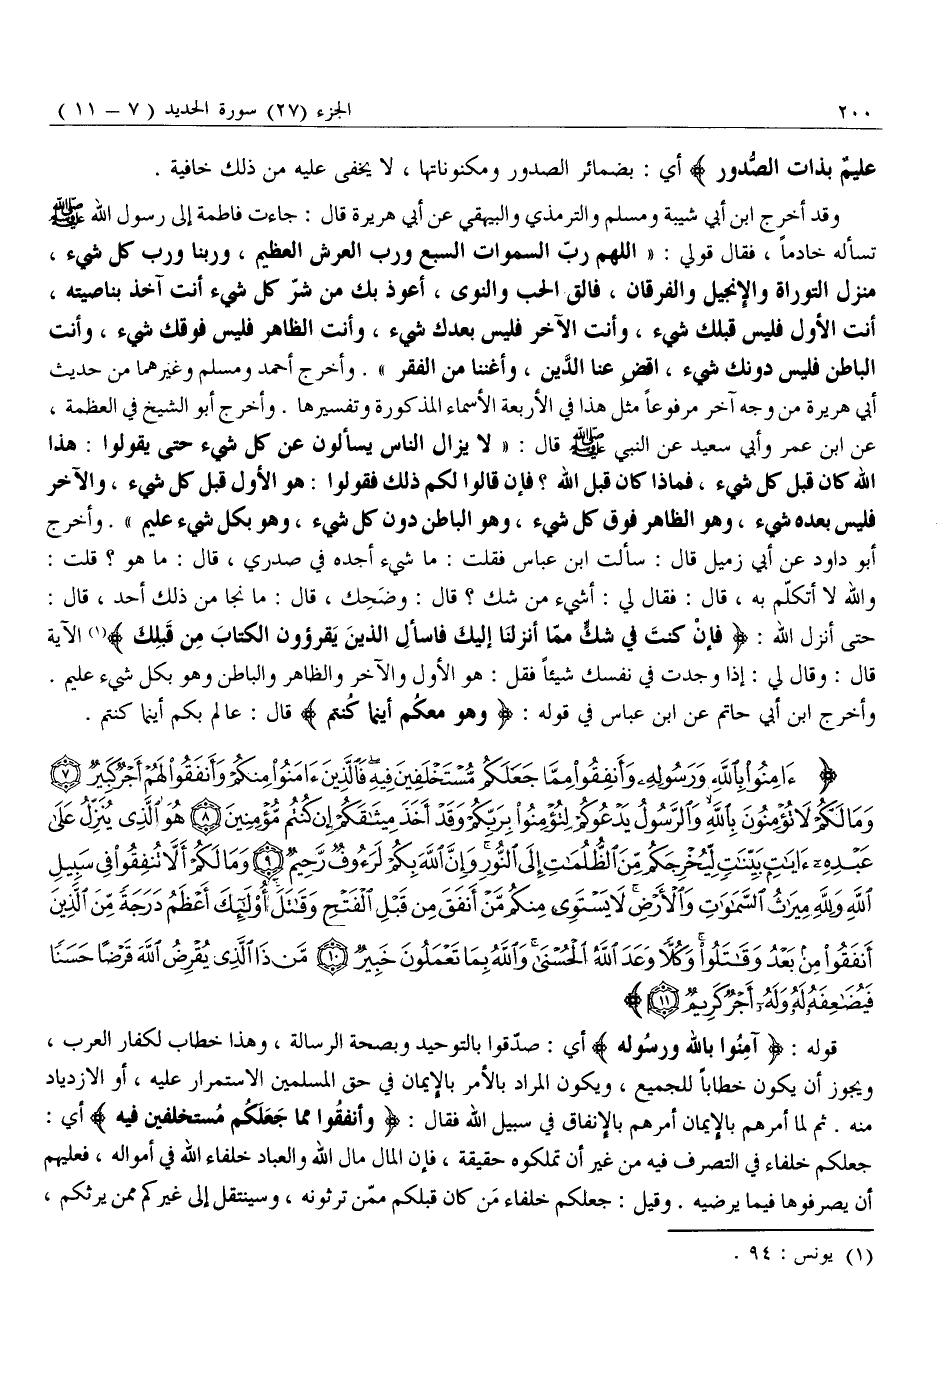 ٢٠٠ الجزء (٢٧) سورة الحديد ( ٧ – ١١ )
عليمٌ بذات الصُّدور ﴾ أي : بضمائر الصدور ومكنوناتها ، لا يخفى عليه من ذلك خافية .
وقد أخرج ابن أبي شيبة ومسلم والترمذي والبيهقي عن أبي هريرة قال : جاءت فاطمة إلى رسول الله ﷺ
تسأله خادماً ، فقال قولي : « اللهم ربّ السموات السبع ورب العرش العظيم ، وربنا ورب كل شيء ،
منزل التوراة والإنجيل والفرقان ، فالق الحب والنوى ، أعوذ بك من شرّ كل شيء أنت آخذ بناصيته ،
أنت الأول فليس قبلك شيء ، وأنت الآخر فليس بعدك شيء ، وأنت الظاهر فليس فوقك شيء ، وأنت
الباطن فليس دونك شيء ، اقضِ عنا الدَّين ، وأغننا من الفقر » . وأخرج أحمد ومسلم وغيرهما من حديث
أبي هريرة من وجه آخر مرفوعاً مثل هذا في الأربعة الأسماء المذكورة وتفسيرها . وأخرج أبو الشيخ في العظمة ،
عن ابن عمر وأبي سعيد عن النبي ﷺ قال : « لا يزال الناس يسألون عن كل شيء حتى يقولوا : هذا
الله كان قبل كل شيء ، فماذا كان قبل الله ؟ فإن قالوا لكم ذلك فقولوا : هو الأول قبل كل شيء ، والآخر
فليس بعده شيء ، وهو الظاهر فوق كل شيء ، وهو الباطن دون كل شيء ، وهو بكل شيء عليم » . وأخرج
أبو داود عن أبي زميل قال : سألت ابن عباس فقلت : ما شيء أجده في صدري ، قال : ما هو ؟ قلت :
والله لا أتكلّم به ، قال : فقال لي : أشيء من شك ؟ قال : وضَحِك ، قال : ما نجا من ذلك أحد ، قال :
حتى أنزل الله : ﴿ فإنْ كنتَ في شكٍّ ممّا أنزلنَا إليكَ فاسألِ الذينَ يَقرؤون الكتابَ مِن قَبلِكَ ﴾(١) الآية
قال : وقال لي : إذا وجدت في نفسك شيئاً فقل : هو الأول والآخر والظاهر والباطن وهو بكل شيء عليم .
وأخرج ابن أبي حاتم عن ابن عباس في قوله : ﴿ وهو معكُم أينما كُنتم ﴾ قال : عالم بكم أينما كنتم .
﴿ ءَامِنُوا۟ بِٱللَّهِ وَرَسُولِهِۦ وَأَنفِقُوا۟ مِمَّا جَعَلَكُم مُّسْتَخْلَفِينَ فِيهِ ۖ فَٱلَّذِينَ ءَامَنُوا۟ مِنكُمْ وَأَنفَقُوا۟ لَهُمْ أَجْرٌ كَبِيرٌ ٧
وَمَا لَكُمْ لَا تُؤْمِنُونَ بِٱللَّهِ ۙ وَٱلرَّسُولُ يَدْعُوكُمْ لِتُؤْمِنُوا۟ بِرَبِّكُمْ وَقَدْ أَخَذَ مِيثَـٰقَكُمْ إِن كُنتُم مُّؤْمِنِينَ ٨ هُوَ ٱلَّذِى يُنَزِّلُ عَلَىٰ
عَبْدِهِۦٓ ءَايَـٰتٍۭ بَيِّنَـٰتٍ لِّيُخْرِجَكُم مِّنَ ٱلظُّلُمَـٰتِ إِلَى ٱلنُّورِ ۚ وَإِنَّ ٱللَّهَ بِكُمْ لَرَءُوفٌ رَّحِيمٌ ٩ وَمَا لَكُمْ أَلَّا تُنفِقُوا۟ فِى سَبِيلِ
ٱللَّهِ وَلِلَّهِ مِيرَٰثُ ٱلسَّمَـٰوَٰتِ وَٱلْأَرْضِ ۚ لَا يَسْتَوِى مِنكُم مَّنْ أَنفَقَ مِن قَبْلِ ٱلْفَتْحِ وَقَـٰتَلَ ۚ أُو۟لَـٰٓئِكَ أَعْظَمُ دَرَجَةً مِّنَ ٱلَّذِينَ
أَنفَقُوا۟ مِنۢ بَعْدُ وَقَـٰتَلُوا۟ ۚ وَكُلًّا وَعَدَ ٱللَّهُ ٱلْحُسْنَىٰ ۚ وَٱللَّهُ بِمَا تَعْمَلُونَ خَبِيرٌ ١٠ مَّن ذَا ٱلَّذِى يُقْرِضُ ٱللَّهَ قَرْضًا حَسَنًا
فَيُضَـٰعِفَهُۥ لَهُۥ وَلَهُۥٓ أَجْرٌ كَرِيمٌ ١١ ﴾
قوله : ﴿ آمِنُوا بالله ورسُوله ﴾ أي : صدّقوا بالتوحيد وبصحة الرسالة ، وهذا خطاب لكفار العرب ،
ويجوز أن يكون خطاباً للجميع ، ويكون المراد بالأمر بالإيمان في حق المسلمين الاستمرار عليه ، أو الازدياد
منه . ثم لما أمرهم بالإيمان أمرهم بالإنفاق في سبيل الله فقال : ﴿ وأنفقُوا مما جَعَلَكُم مُستخلفين فيه ﴾ أي :
جعلكم خلفاء في التصرف فيه من غير أن تملكوه حقيقة ، فإن المال مال الله والعباد خلفاء الله في أمواله ، فعليهم
أن يصرفوها فيما يرضيه . وقيل : جعلكم خلفاء مَن كان قبلكم ممّن ترثونه ، وسينتقل إلى غيركم ممن يرثكم ،
(١) يونس : ٩٤ .